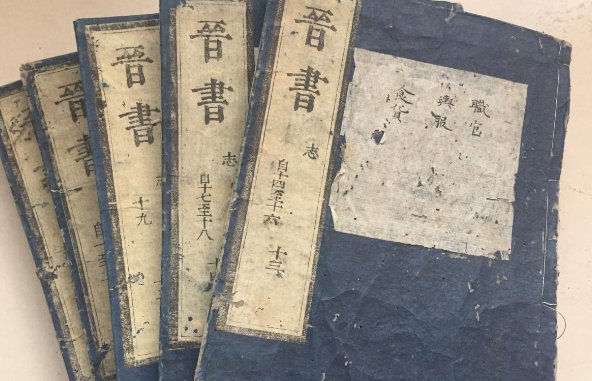 職官
輿服
食貨
晉書
志
自十四至十六
十三
晉書
志
自十七至十八
晉書
志
十九
晉書